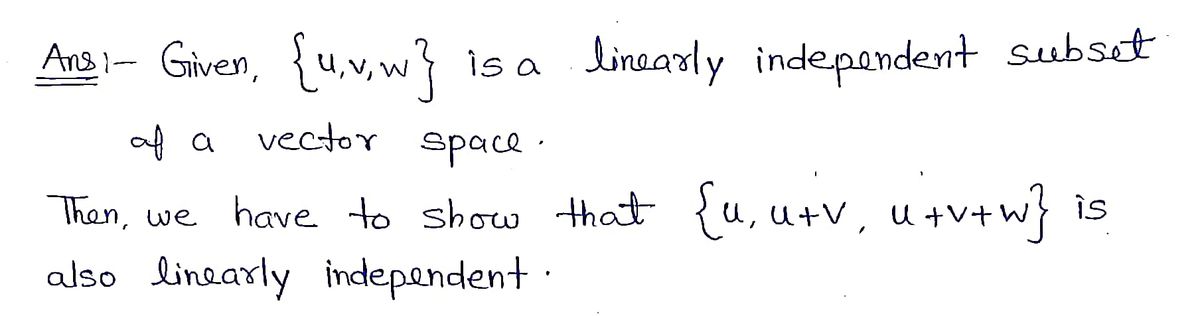 Ans:- Given, {u,v,w} is a linearly independent subset
of a vector space.
Then, we have to show that {u, u+v, u+v+w} is
also linearly independent.